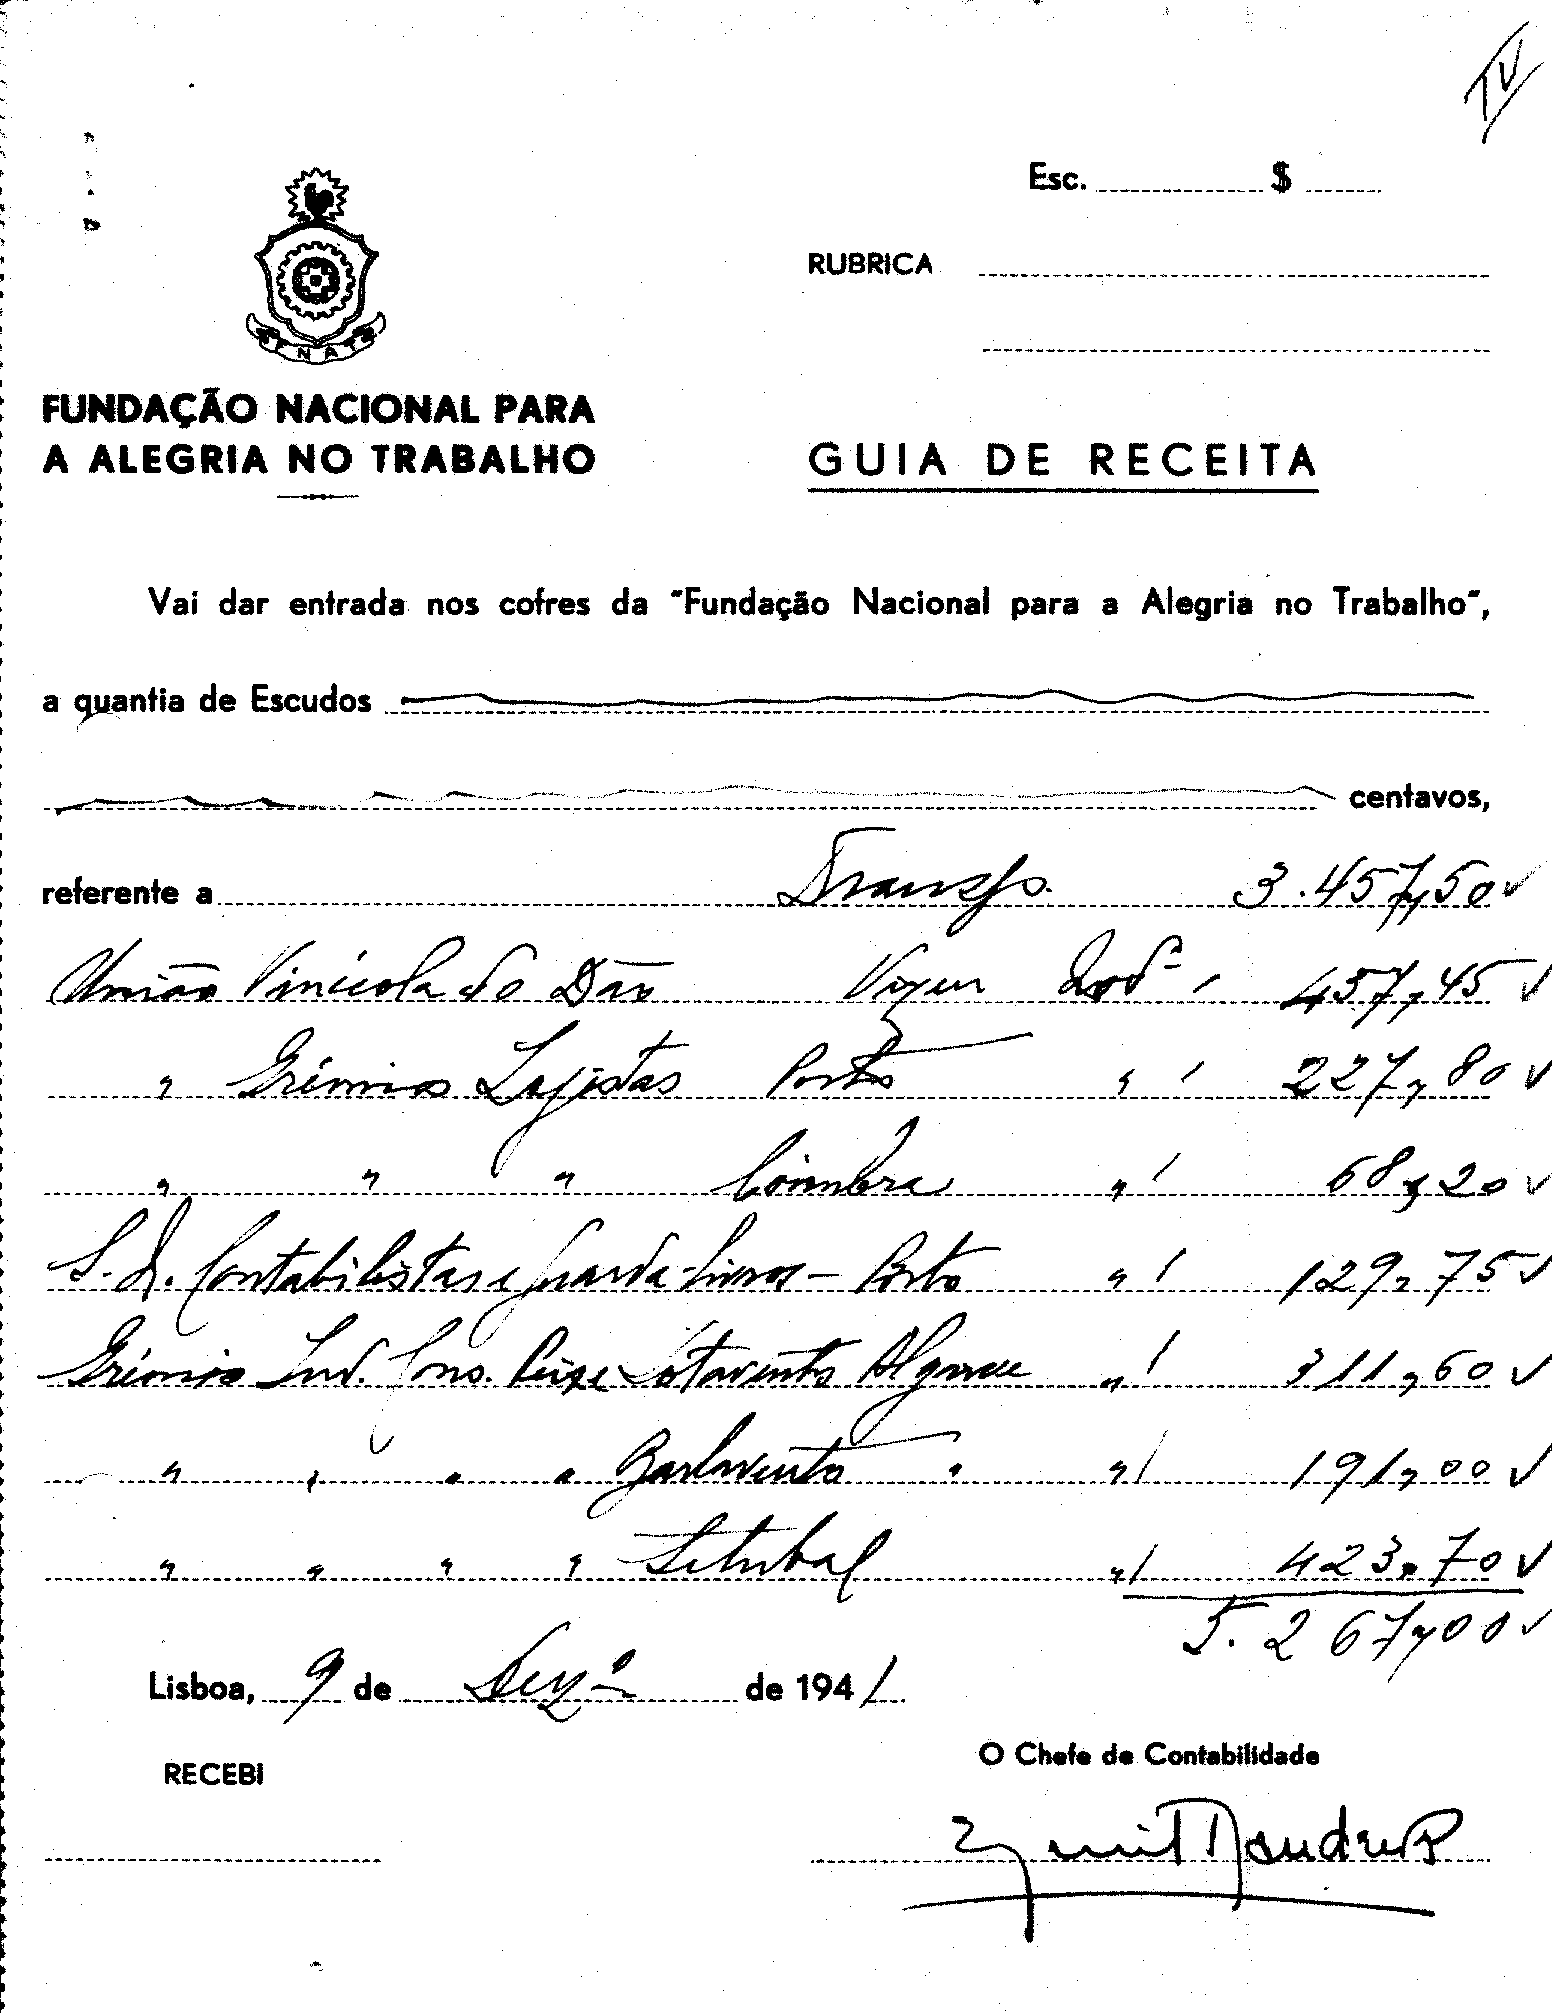 IV
Esc. $
RUBRICA
FNAT
FUNDAÇÃO NACIONAL PARA
A ALEGRIA NO TRABALHO
GUIA DE RECEITA
Vai dar entrada nos cofres da "Fundação Nacional para a Alegria no Trabalho",
a quantia de Escudos
centavos,
referente a Transp. 3.457,50
União Vinícola do Dão 457,45
" Grémios Lojistas Porto " 227,80
" " " Coimbra " 68,20
S. N. Contabilistas e Guarda-Livros - Porto " 129,75
Grémio Ind. Cons. Peixe Sotavento Algarve " 311,60
" " " " Barlavento " " 191,00
" " " " Setubal " 423,70
5.267,00
Lisboa, 9 de Dezº de 1941
O Chefe de Contabilidade
RECEBI